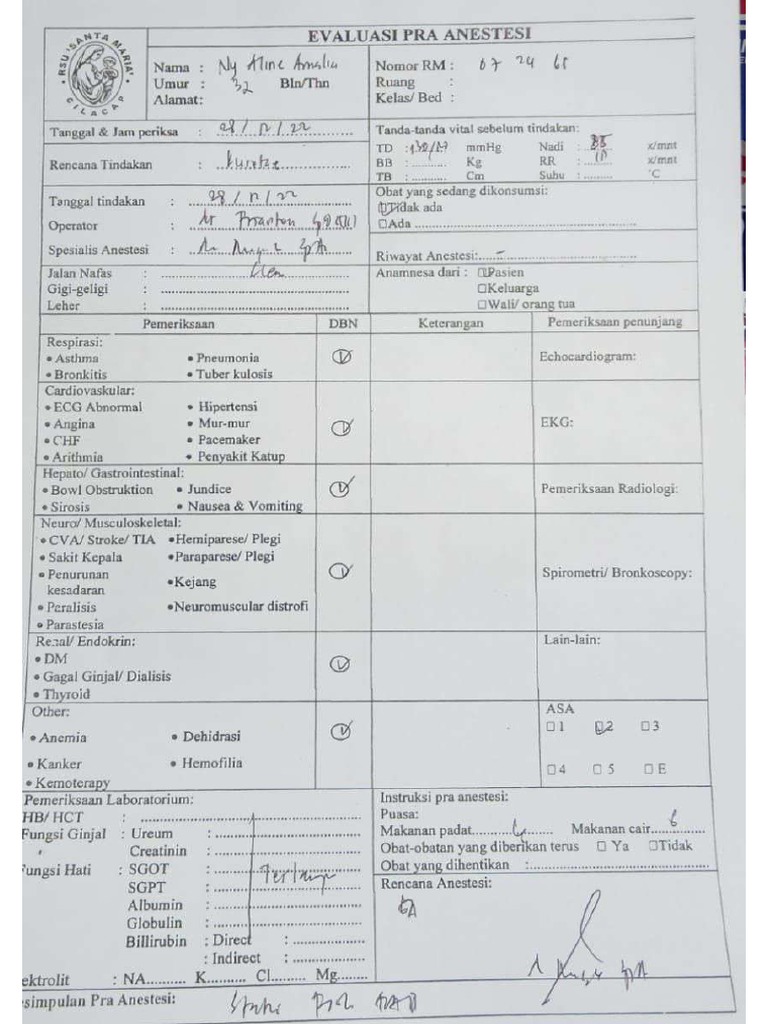 RSU 'SANTA MARIA' CILACAP
EVALUASI PRA ANESTESI
Nama : Ny Aline Amalia
Umur : 32 Bln/Thn
Alamat:
Nomor RM : 07 24 68
Ruang :
Kelas/ Bed :
Tanggal & Jam periksa : 28/12/22
Rencana Tindakan : kuretase
Tanda-tanda vital sebelum tindakan:
TD : 130/ mmHg Nadi : 88 x/mnt
BB : Kg RR : x/mnt
TB : Cm Suhu : °C
Tanggal tindakan : 28/12/22
Operator : dr
Spesialis Anestesi : dr SpA
Obat yang sedang dikonsumsi:
Tidak ada
Ada
Riwayat Anestesi: -
Jalan Nafas : Clear
Gigi-geligi :
Leher :
Anamnesa dari : Pasien
Keluarga
Wali/ orang tua
Pemeriksaan DBN Keterangan Pemeriksaan penunjang
Respirasi:
• Asthma • Pneumonia
• Bronkitis • Tuber kulosis
Echocardiogram:
Cardiovaskular:
• ECG Abnormal • Hipertensi
• Angina • Mur-mur
• CHF • Pacemaker
• Arithmia • Penyakit Katup
EKG:
Hepato/ Gastrointestinal:
• Bowl Obstruktion • Jundice
• Sirosis • Nausea & Vomiting
Pemeriksaan Radiologi:
Neuro/ Musculoskeletal:
• CVA/ Stroke/ TIA • Hemiparese/ Plegi
• Sakit Kepala • Paraparese/ Plegi
• Penurunan kesadaran • Kejang
• Peralisis • Neuromuscular distrofi
• Parastesia
Spirometri/ Bronkoscopy:
Renal/ Endokrin:
• DM
• Gagal Ginjal/ Dialisis
• Thyroid
Lain-lain:
Other:
• Anemia • Dehidrasi
• Kanker • Hemofilia
• Kemoterapy
ASA
1 2 3
4 5 E
Pemeriksaan Laboratorium:
HB/ HCT :
Fungsi Ginjal : Ureum :
Creatinin :
Fungsi Hati : SGOT : Terlampir
SGPT :
Albumin :
Globulin :
Billirubin : Direct :
: Indirect :
ektrolit : NA K Cl Mg
Instruksi pra anestesi:
Puasa:
Makanan padat 6 Makanan cair 6
Obat-obatan yang diberikan terus Ya Tidak
Obat yang dihentikan :
Rencana Anestesi:
GA
esimpulan Pra Anestesi: Status